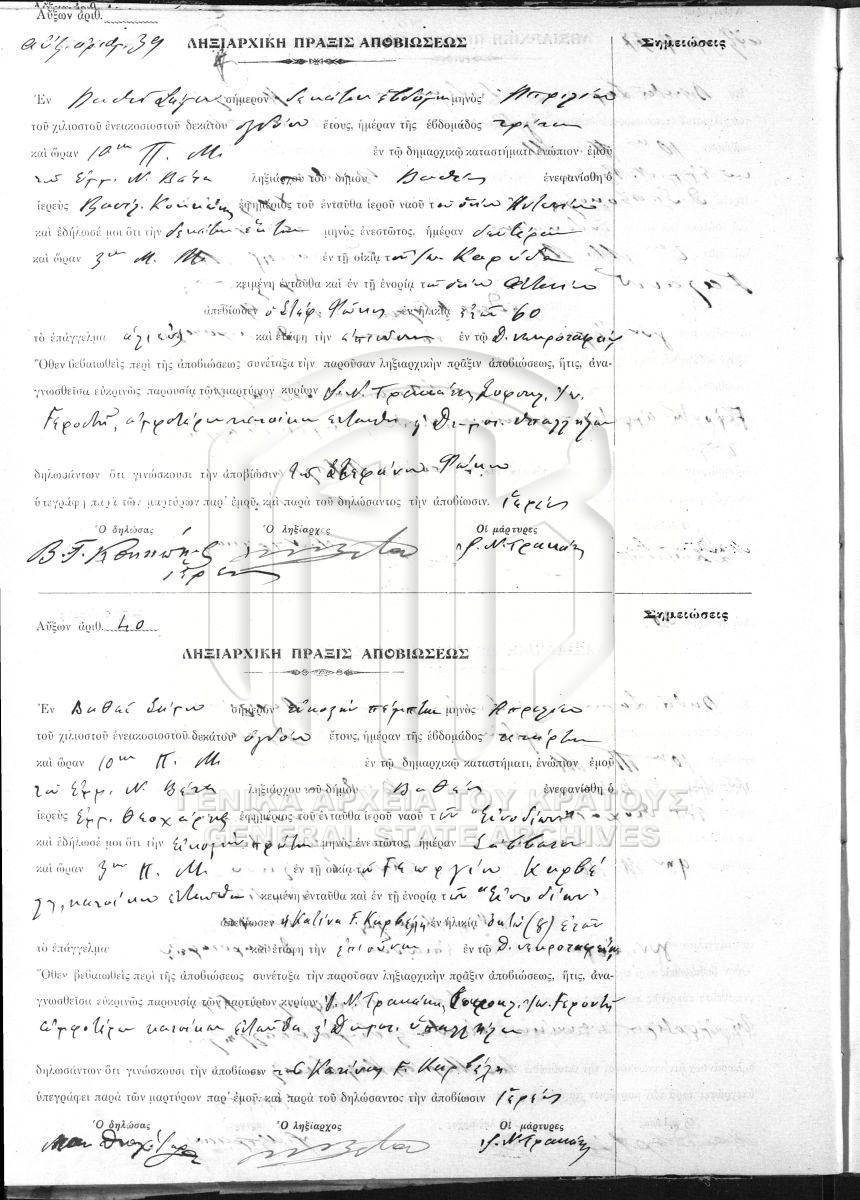 Αὔξων ἀριθ.
αὔξ. ἀριθ. 39
ΛΗΞΙΑΡΧΙΚΗ ΠΡΑΞΙΣ ΑΠΟΒΙΩΣΕΩΣ
Σημειώσεις
Ἐν Σάμου σήμερον δεκάτην ἑβδόμην μηνὸς Ἀπριλίου
τοῦ χιλιοστοῦ ἐνεακοσιοστοῦ δεκάτου ὀγδόου ἔτους, ἡμέραν τῆς ἑβδομάδος τρίτην
καὶ ὥραν 10ην Π. Μ. ἐν τῷ δημαρχικῷ καταστήματι ἐνώπιον ἐμοῦ
τοῦ Ἐμμ. Ν. Βέτα ληξιάρχου τοῦ δήμου Βαθέος ἐνεφανίσθη ὁ
ἱερεὺς Βασίλ. ἐφημέριος τοῦ ἐνταῦθα ἱεροῦ ναοῦ τοῦ Ἁγίου Ἀντωνίου
καὶ ἐδήλωσέ μοι ὅτι τὴν δεκάτην ἕκτην μηνὸς ἐνεστῶτος, ἡμέραν δευτέραν
καὶ ὥραν 3ην Μ. Μ. ἐν τῇ οἰκίᾳ τοῦ Ἰω.
κειμένῃ ἐνταῦθα καὶ ἐν τῇ ἐνορίᾳ τοῦ Ἁγίου Ἀντωνίου
ἀπεβίωσεν ὁ Στέφ. Φώκης ἐν ἡλικίᾳ ἐτῶν 60
τὸ ἐπάγγελμα ἁλιεὺς καὶ ἐτάφη τὴν ἐπιοῦσαν ἐν τῷ Δ. νεκροταφείῳ
Ὅθεν βεβαιωθεὶς περὶ τῆς ἀποβιώσεως συνέταξα τὴν παροῦσαν ληξιαρχικὴν πρᾶξιν ἀποβιώσεως, ἥτις, ἀνα-
γνωσθεῖσα εὐκρινῶς παρουσίᾳ τῶν μαρτύρων κυρίων Ν. Τρακάκη, Σοφοκλ. Ἰω.
Γεροντῆ, ἀμφοτέρων κατοίκων ἐνταῦθα, δημοτ. ὑπαλλήλων
δηλωσάντων ὅτι γινώσκουσι τὴν ἀποβίωσιν τοῦ Στεφάνου Φώκου
ὑπεγράφη παρὰ τῶν μαρτύρων παρ' ἐμοῦ, καὶ παρὰ τοῦ δηλώσαντος τὴν ἀποβίωσιν. ἱερέως
Ὁ δηλώσας Ὁ ληξίαρχος Οἱ μάρτυρες
Β. Γ. Ν. Τρακάκης
ἱερεὺς
Αὔξων ἀριθ. 40
Σημειώσεις
ΛΗΞΙΑΡΧΙΚΗ ΠΡΑΞΙΣ ΑΠΟΒΙΩΣΕΩΣ
Ἐν Βαθεῖ Σάμου σήμερον εἰκοστὴν πέμπτην μηνὸς Ἀπριλίου
τοῦ χιλιοστοῦ ἐνεακοσιοστοῦ δεκάτου ὀγδόου ἔτους, ἡμέραν τῆς ἑβδομάδος τετάρτην
καὶ ὥραν 10ην Π. Μ. ἐν τῷ δημαρχικῷ καταστήματι, ἐνώπιον ἐμοῦ
τοῦ Ἐμμ. Ν. Βέτα ληξιάρχου τοῦ δήμου Βαθέος ἐνεφανίσθη ὁ
ΓΕΝΙΚΑ ΑΡΧΕΙΑ ΤΟΥ ΚΡΑΤΟΥΣ
ἱερεὺς Ἐμμ. Θεοχάρης ἐφημέριος τοῦ ἐνταῦθα ἱεροῦ ναοῦ τῶν "Εἰσοδίων"
GENERAL STATE ARCHIVES
καὶ ἐδήλωσέ μοι ὅτι τὴν εἰκοστὴν πρώτην μηνὸς ἐνεστῶτος, ἡμέραν Σάββατον
καὶ ὥραν 3ην Π. Μ. ἐν τῇ οἰκίᾳ τοῦ Γεωργίου Καρβέ
λη, κατοίκου ἐνταῦθα κειμένῃ ἐνταῦθα καὶ ἐν τῇ ἐνορίᾳ τῶν "Εἰσοδίων"
ἀπεβίωσεν ἡ Κατίνα Γ. Καρβέλη ἐν ἡλικίᾳ ὀκτὼ (8) ἐτῶν
τὸ ἐπάγγελμα καὶ ἐτάφη τὴν ἐπιοῦσαν ἐν τῷ Δ. νεκροταφείῳ
Ὅθεν βεβαιωθεὶς περὶ τῆς ἀποβιώσεως συνέταξα τὴν παροῦσαν ληξιαρχικὴν πρᾶξιν ἀποβιώσεως, ἥτις, ἀνα-
γνωσθεῖσα εὐκρινῶς παρουσίᾳ τῶν μαρτύρων κυρίων Ν. Τρακάκη, Σοφοκλ. Ἰω. Γεροντῆ
ἀμφοτέρων κατοίκων ἐνταῦθα δημοτ. ὑπαλλήλων
δηλωσάντων ὅτι γινώσκουσι τὴν ἀποβίωσιν τῆς Κατίνας Γ. Καρβέλη
ὑπεγράφει παρὰ τῶν μαρτύρων παρ' ἐμοῦ, καὶ παρὰ τοῦ δηλώσαντος τὴν ἀποβίωσιν ἱερέως
Ὁ δηλώσας Ὁ ληξίαρχος Οἱ μάρτυρες
Ν. Τρακάκης